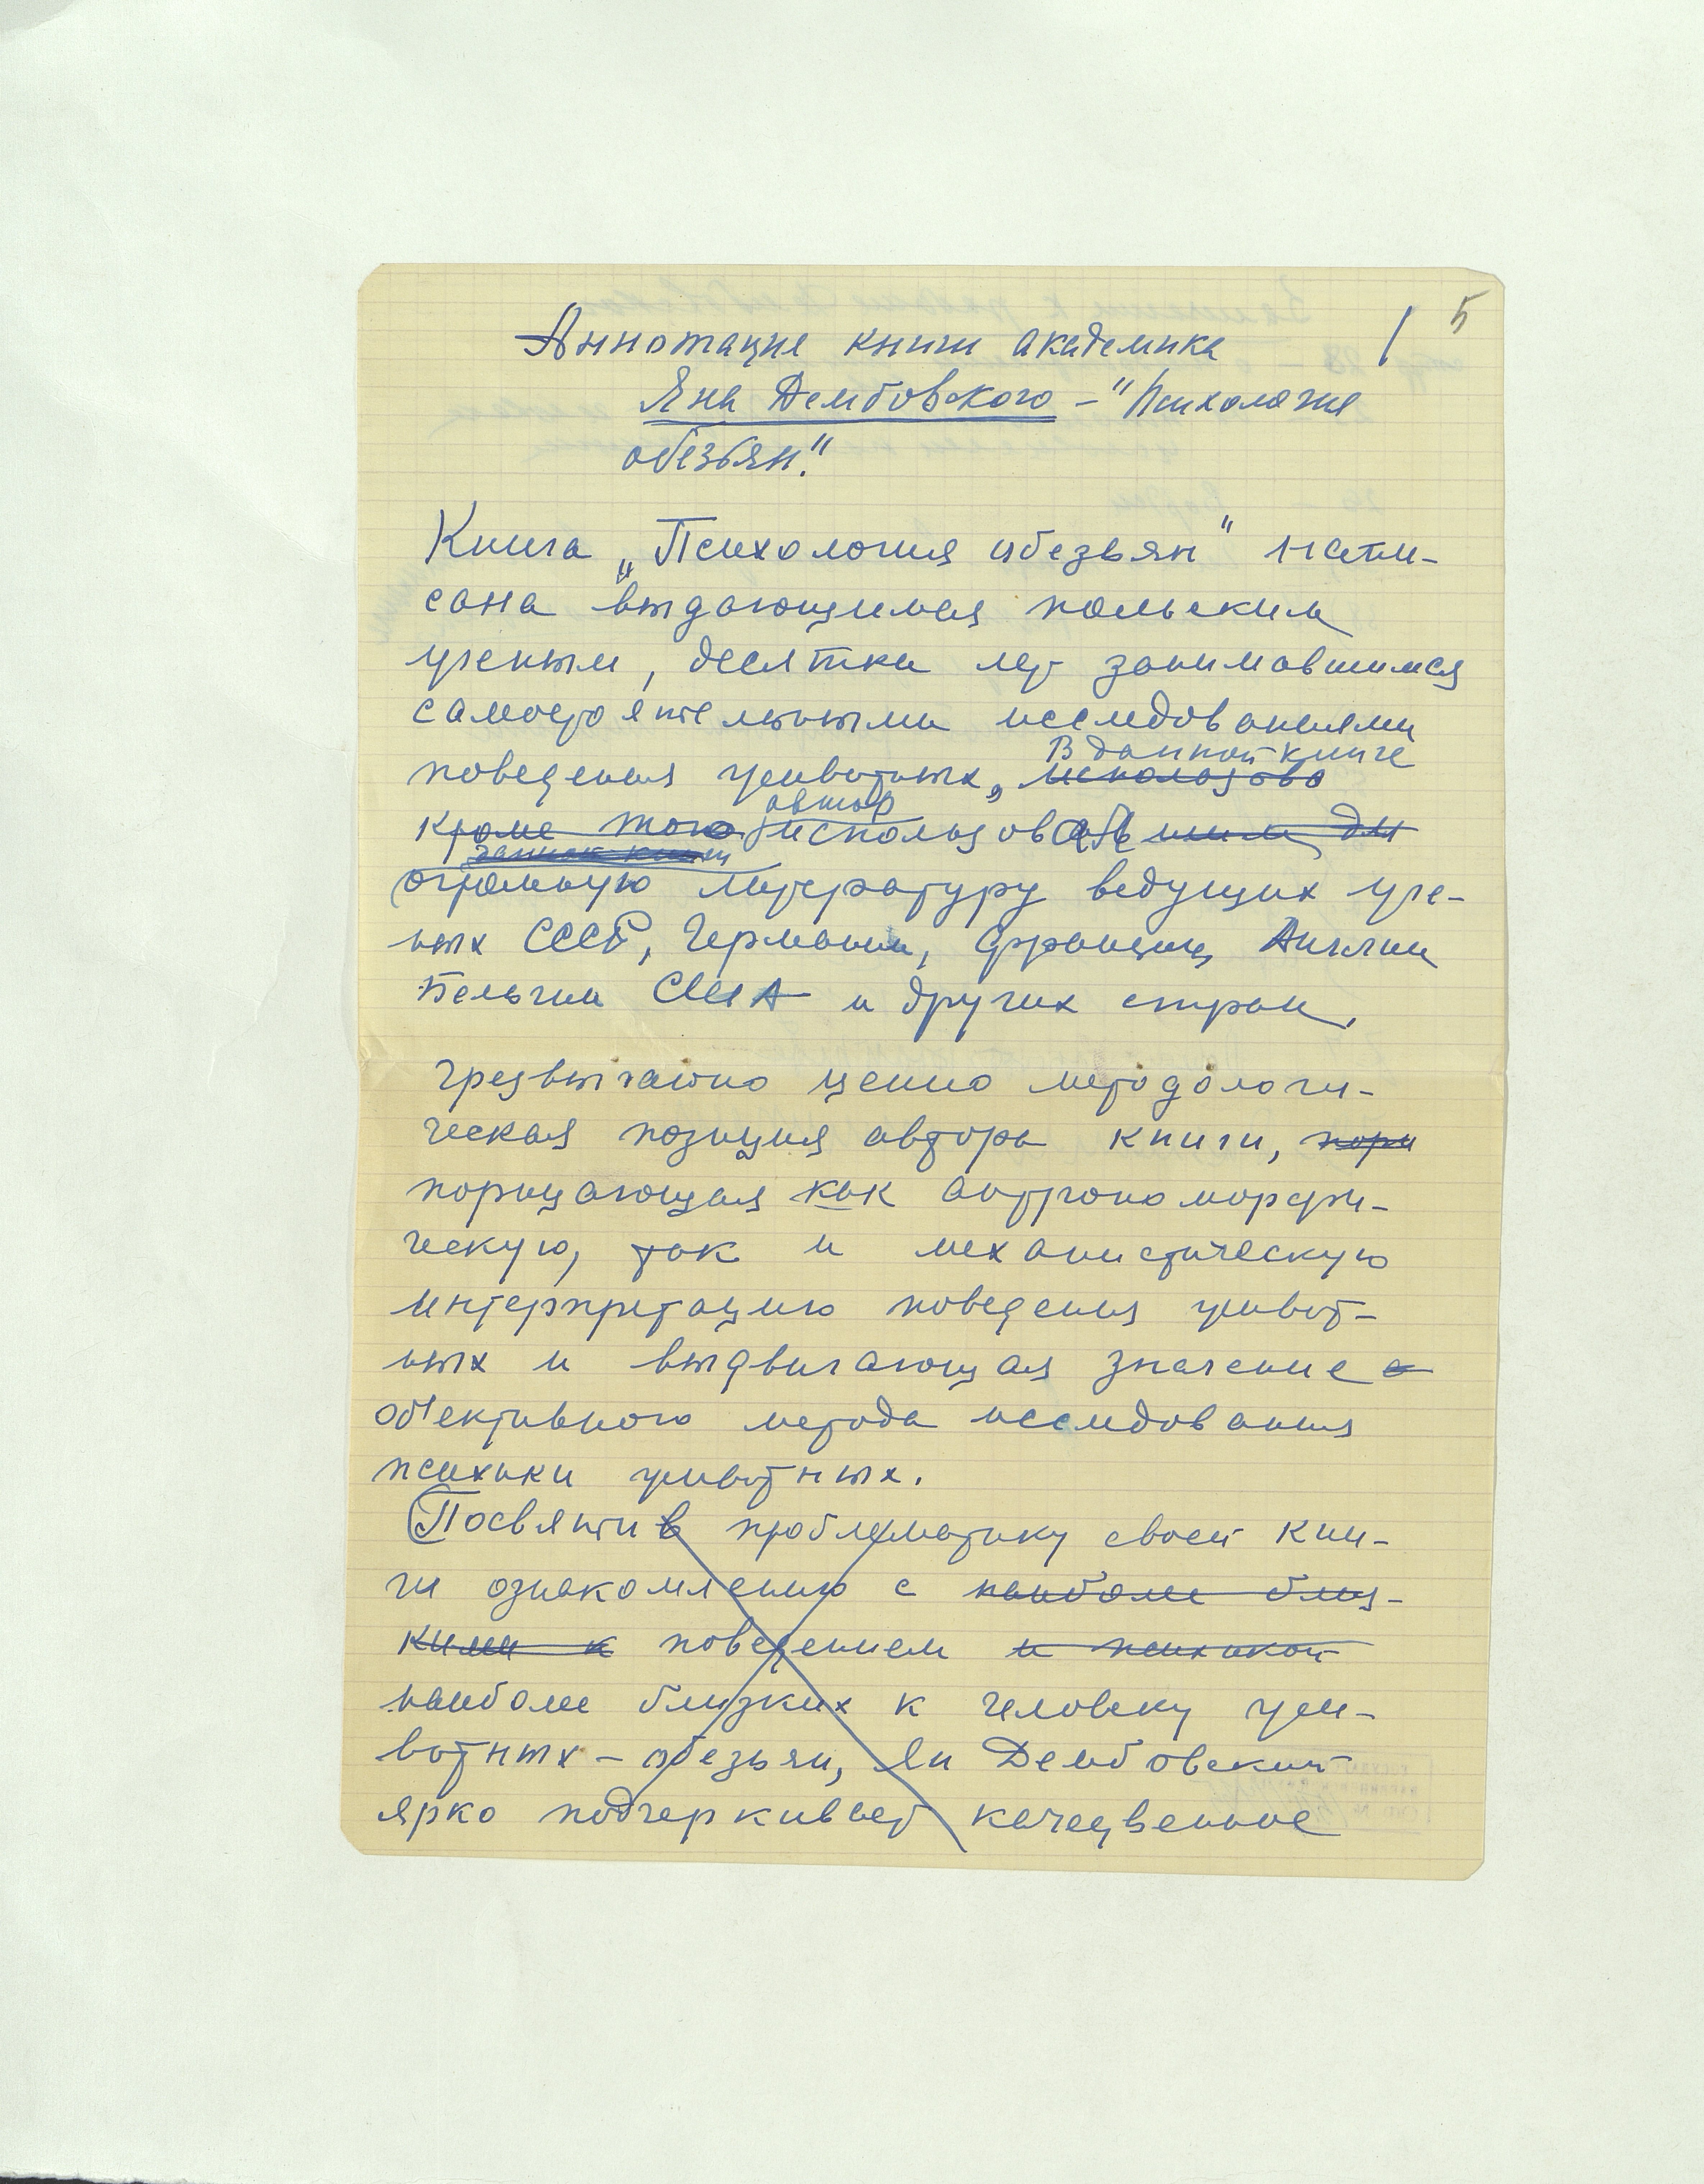 5
1
Аннотация книги академика
Яна Дембовского – "Психология
обезьян."
Книга „Психология обезьян" напи-
сана выдающимся польским
ученым, десятки лет занимавшимся
самостоятельными исследованиями
В данной книге
поведения животных, использова
автор
кроме того использовав
данной книги
огромную литературу ведущих уче-
ных СССР, Германии, Франции, Англии
Бельгии США и других стран.
Чрезвычайно ценно методологи-
ческая позиция автора книги, пори
порицающая как антропоморфи-
ческую, так и механистическую
интерпретацию поведения живот-
ных и выдвигающая значение
об'ективного метода исследования
психики животных.
Посвятив проблематику своей кни-
ги ознакомлению с наиболее близ-
кими к поведением и психикой
наиболее близких к человеку жи-
вотных – обезьян, Ян Дембовский
ярко подчеркивает качественное